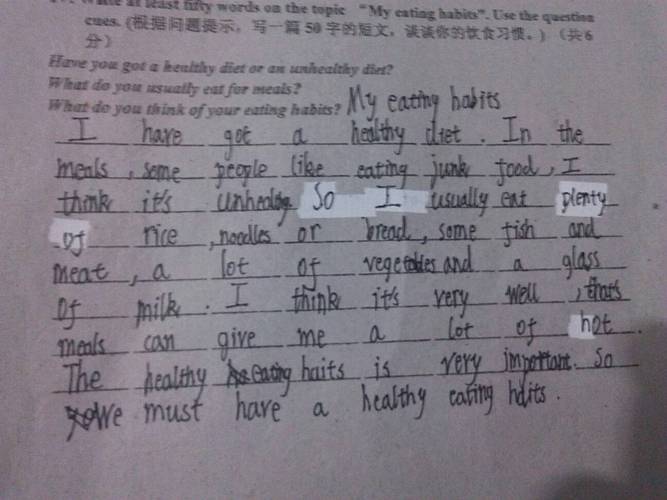 at least fifty words on the topic "My eating habits". Use the question
cues. (根据问题提示，写一篇 50 字的短文，谈谈你的饮食习惯。) (共6
分)
Have you got a healthy diet or an unhealthy diet?
What do you usually eat for meals?
What do you think of your eating habits? My eating habits
I have got a healthy diet. In the
meals, some people like eating junk food, I
think it's So I usually eat plenty
of rice, noodles or bread, some fish and
meat, a lot of vegetables and a glass
of milk. I think it's very well,
meals can give me a lot of hot.
The healthy eating haits is very important. So
We must have a healthy eating hdits.